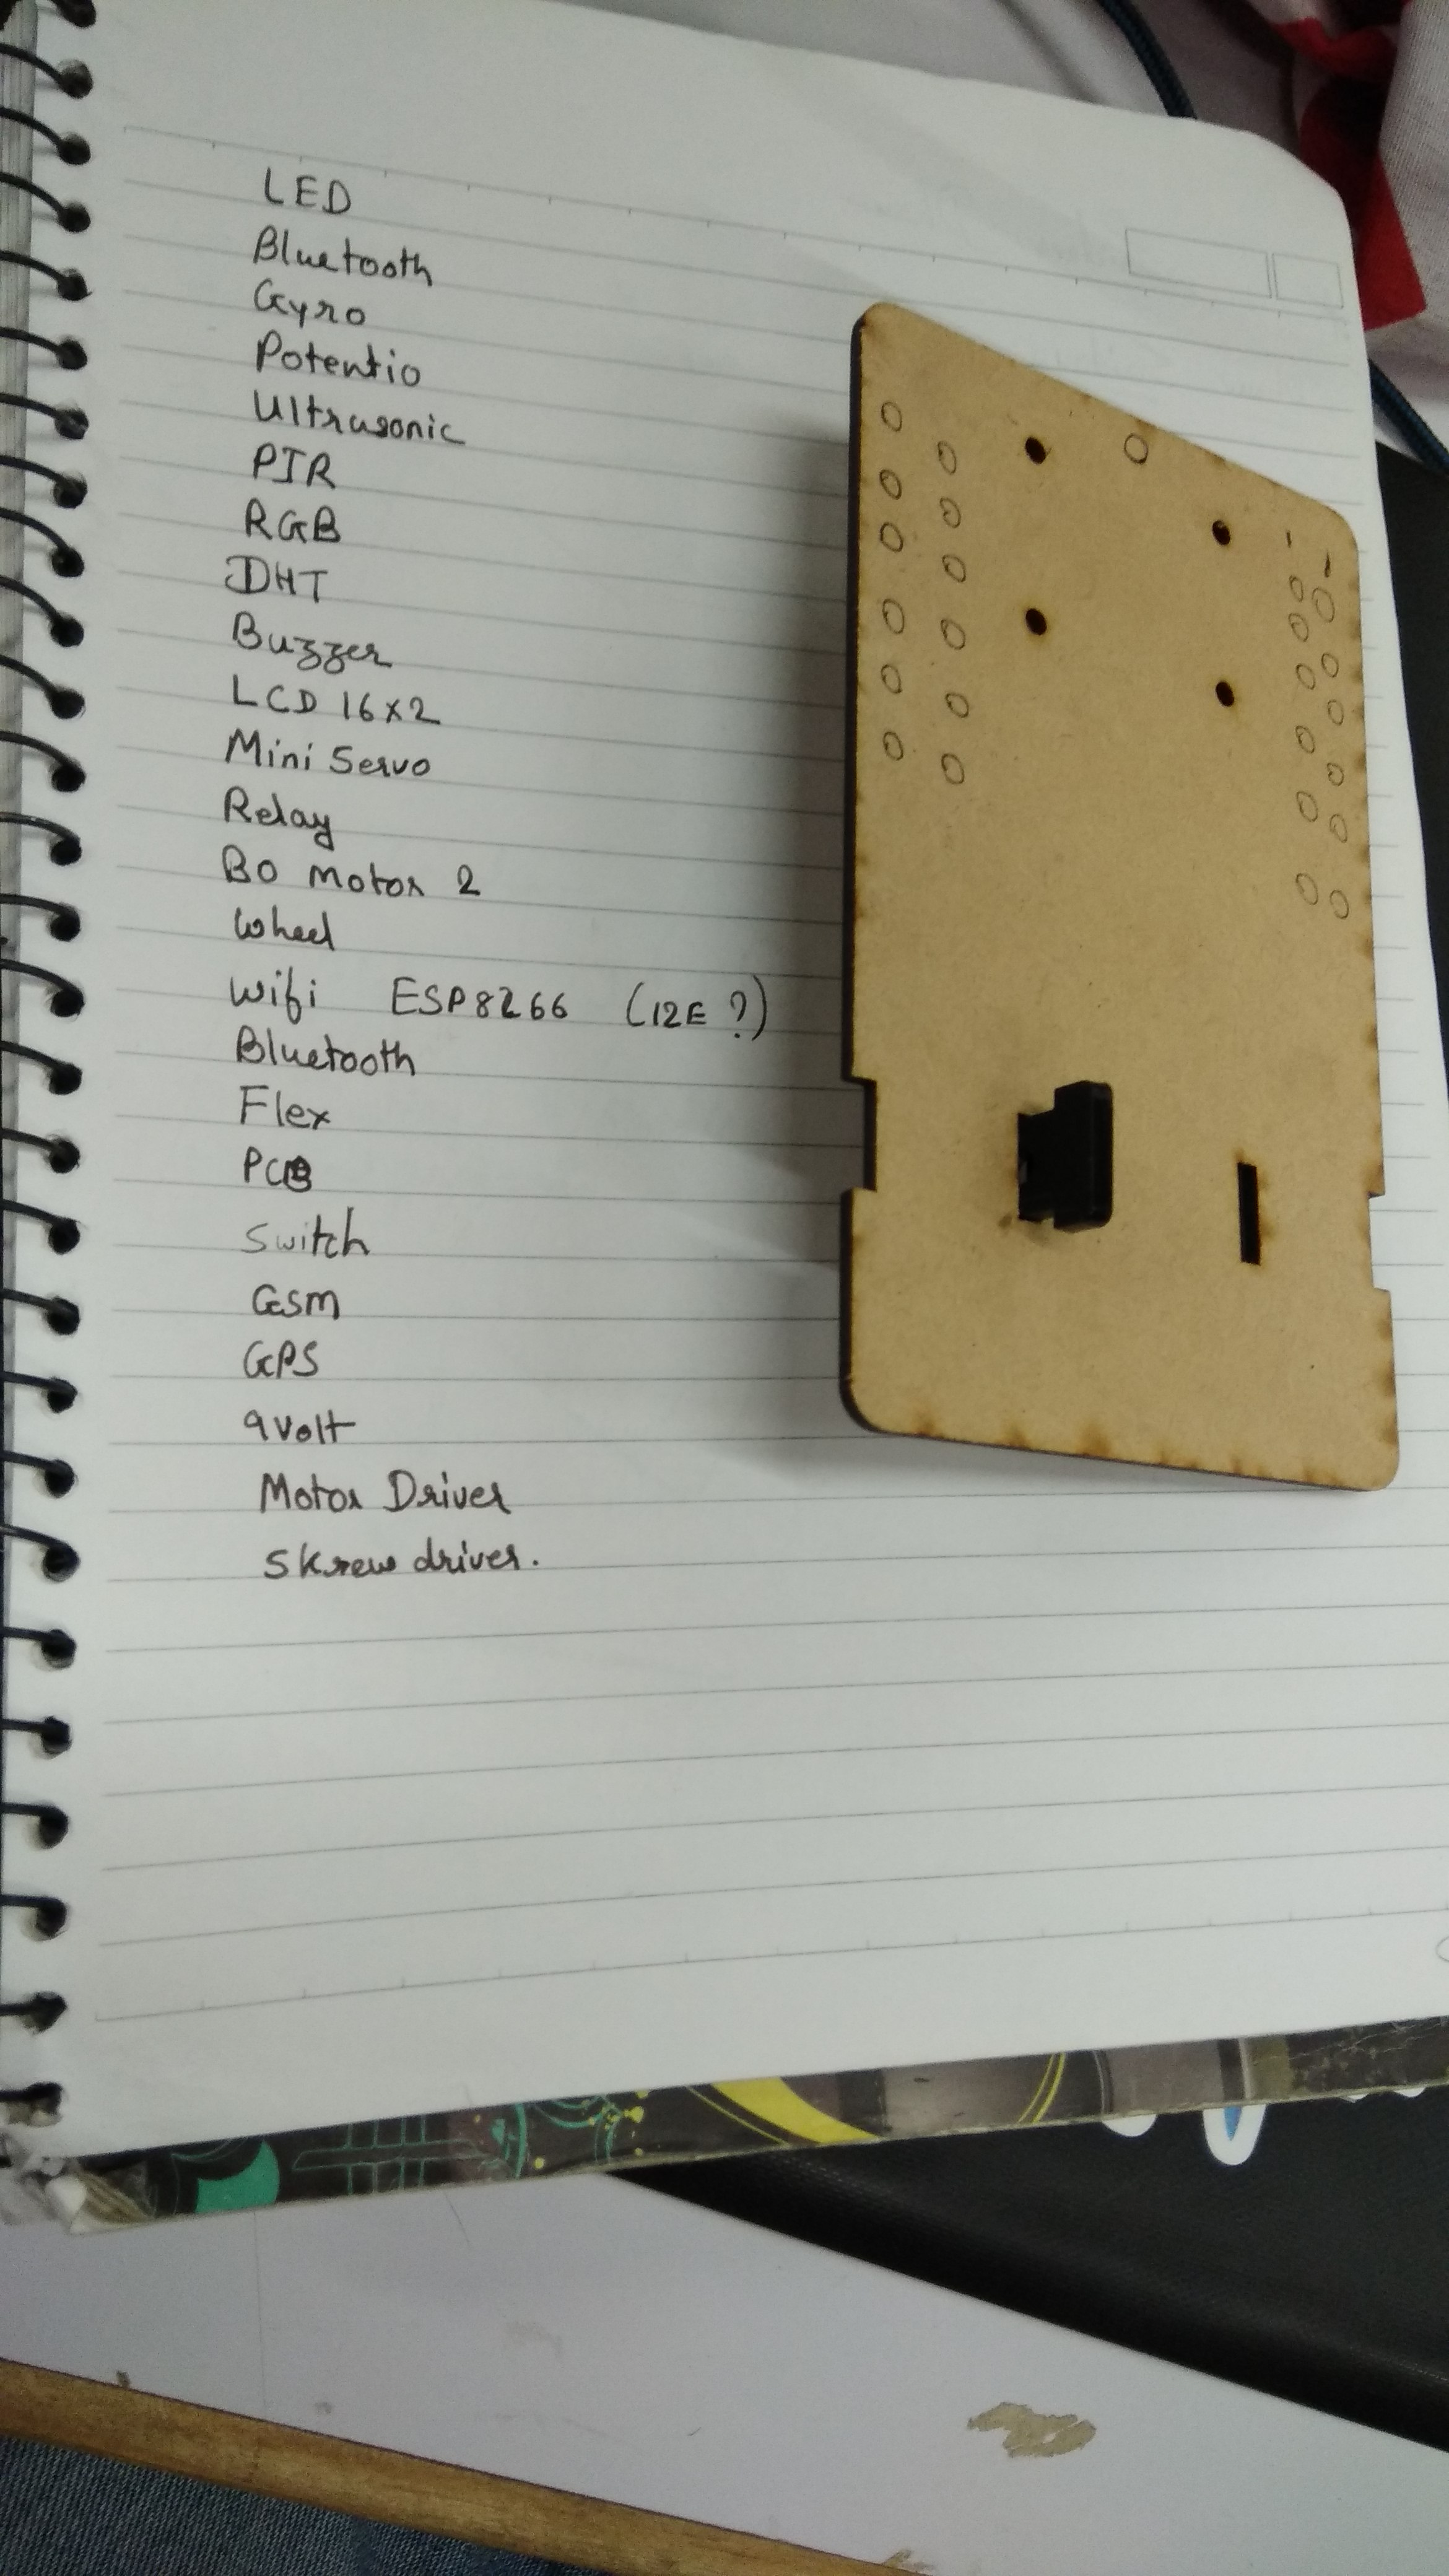 LED
Bluetooth
Gyro
Potentio
Ultrasonic
PIR
RGB
DHT
Buzzer
LCD 16x2
Mini Servo
Relay
BO Motor 2
Wheel
Wifi ESP8266 (12E ?)
Bluetooth
Flex
PCB
Switch
GSM
GPS
9Volt
Motor Driver
Skrew driver.